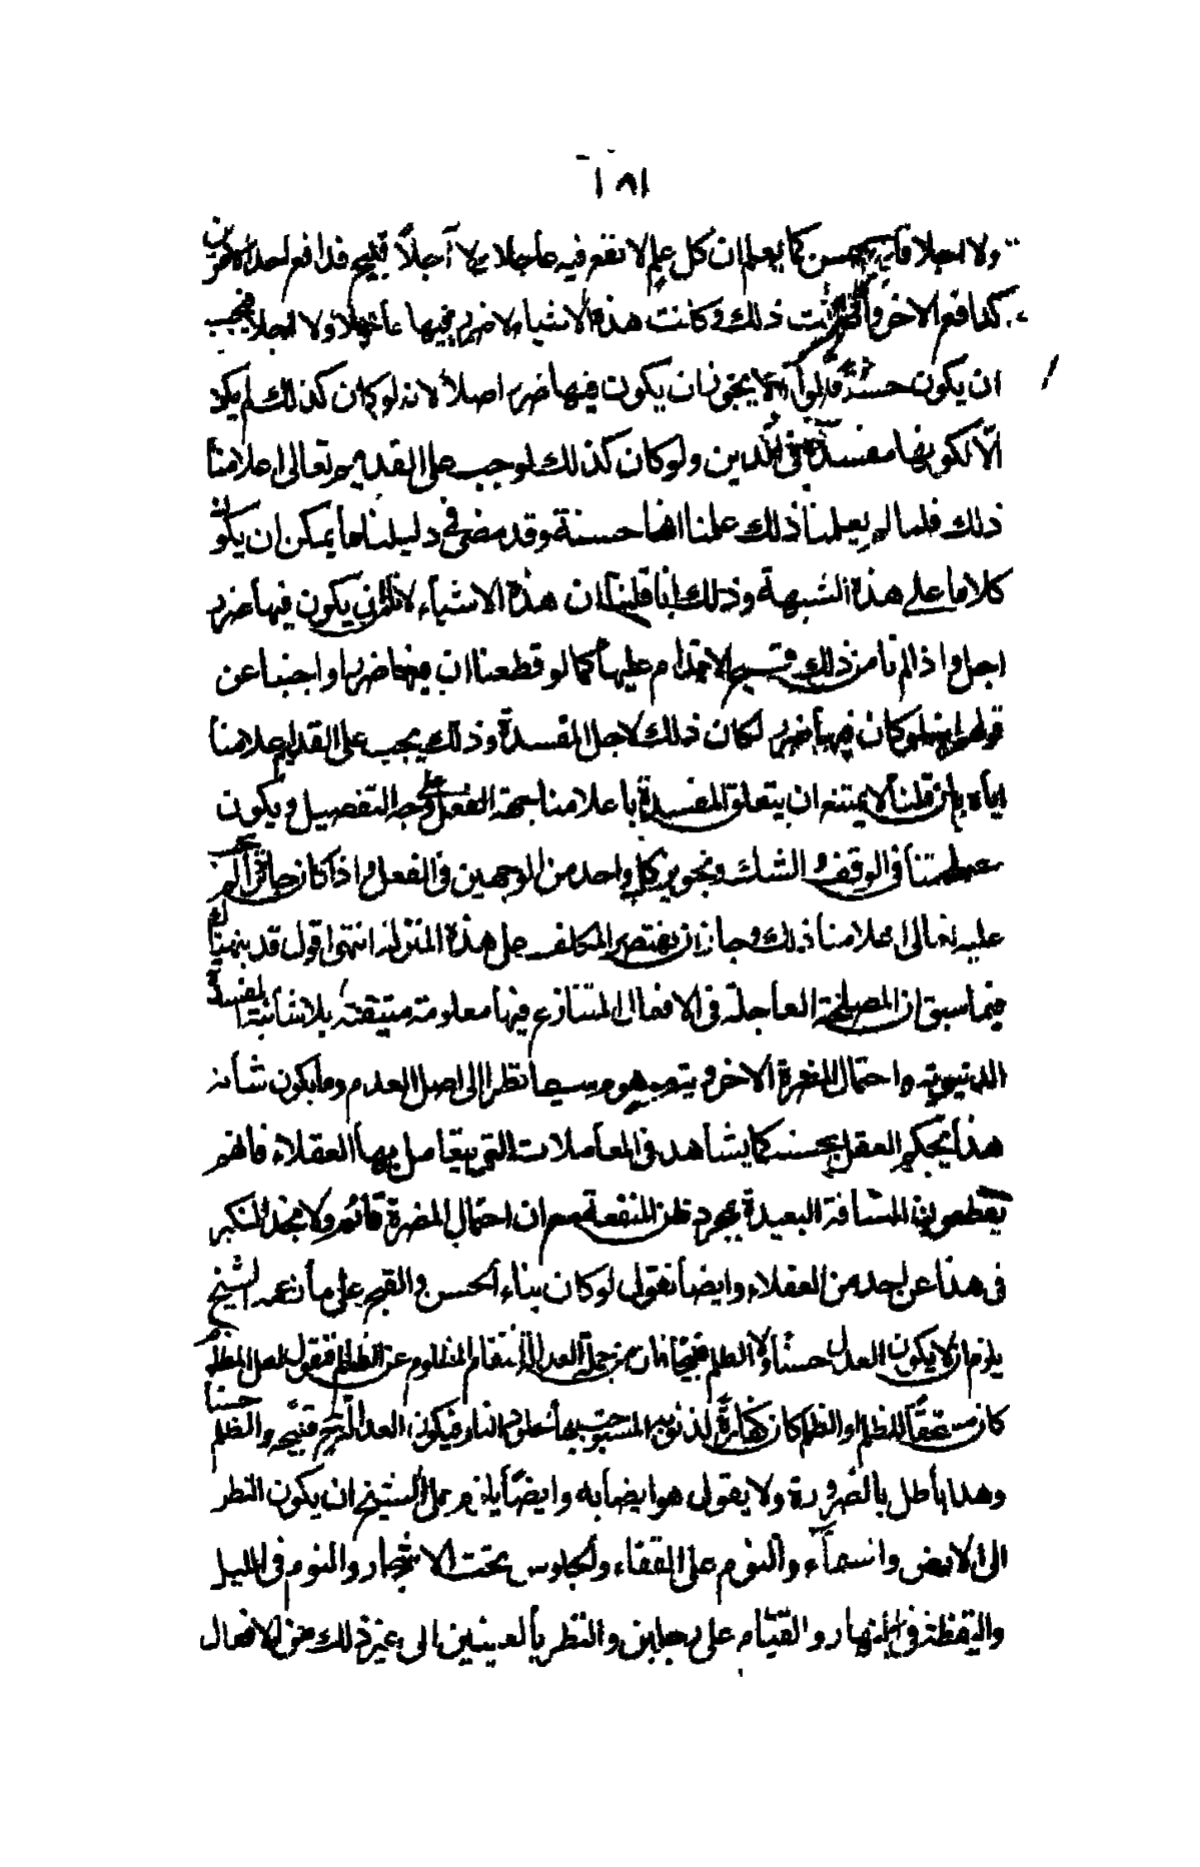 ١٨١
ولا اجلا فانه حسن كما يعلم ان كل علم لا نفع فيه عاجلا ولا آجلاً قبيح فدافع احد الامرين
كدافع الاخر واذا ثبت ذلك وكانت هذه الاشياء لا ضرر فيها عاجلا ولا اجلا فيجب
ان يكون حسنة قالوا ولا يجوز ان يكون فيها ضرر اصلاً لانه لو كان كذلك لم يكن
الّا لكونها مفسدة في الدين ولو كان كذلك لوجب على القديم تعالى اعلامنا
ذلك فلما لم يعلمنا ذلك علمنا انها حسنة وقد مضى في دليلنا ما يمكن ان يكون
كلاما على هذه الشبهة وذلك انا قلنا ان هذه الاشياء لا نأمن ان يكون فيها ضرر
اجل واذا لم نامن ذلك قبيح الاقدام عليها كما لو قطعنا ان فيها ضررا واجبنا عن
قولهم انه لو كان فيها ضرر لكان ذلك لاجل المفسدة وذلك يجب على القديم اعلامنا
اياه بان قلنا لا يمتنع ان يتعلق المفسدة باعلامنا جهة الفعل على وجه التفصيل ويكون
مصلحتنا في الوقف والشك وتجويز كل واحد من الوجهين في الفعل واذا كان جائزا لم يجب
عليه تعالى اعلامنا ذلك وجاز ان يقتصر المكلف على هذه المنزلة انتهى اقول قد بينا لك
فيما سبق ان المصلحة العاجلة في الافعال المتنازع فيها معلومة متيقنة بلا شائبة المفسدة
الدنيوية واحتمال المضرة الاخروية موهوم سيما نظرا الى اصل العدم وما يكون شانه
هذا يحكم العقل بحسنه كما يشاهد في المعاملات التي يتعامل بها العقلاء فانهم
يقطعون المسافة البعيدة بمجرد ظن المنفعة مع ان احتمال المضرة قائم ولا نجد المنكر
في هذا عن احد من العقلاء وايضا نقول لو كان بناء الحسن والقبح على ما زعمه الشيخ
يلزم ان لا يكون العدل حسنا ولا الظلم قبيحا فان من جملة العدل انتقام المظلوم عن الظالم فنقول لعل المظلوم
كان مستحقا للظلم او الظلم كان كفارة لذنوبه المستوجب بها دخول النار فيكون العدل قبيحه والظلم حسنا
وهذا باطل بالضرورة ولا يقول هو ايضا به وايضاً يلزم على الشيخ ان يكون النظر
الى الارض والسماء والنوم على القفاء والجلوس تحت الاشجار والنوم في الليل
واليقظة في النهار والقيام على رجلين والنظر بالعينين الى غير ذلك من الافعال